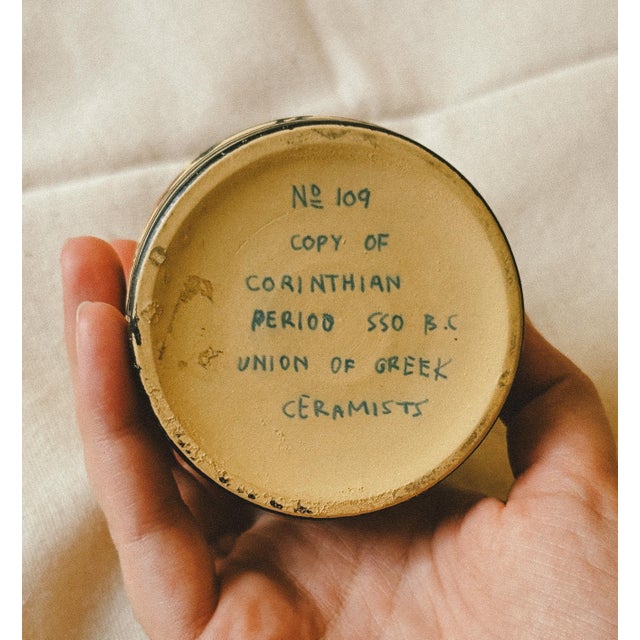 Nº 109
COPY OF
CORINTHIAN
PERIOD 550 B.C
UNION OF GREEK
CERAMISTS